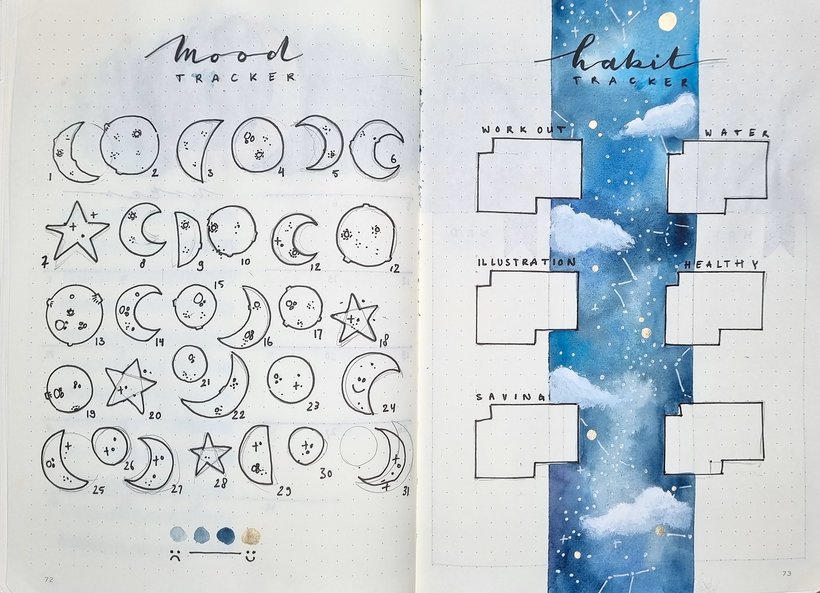 mood
TRACKER
1 2 3 4 5 6
7 8 9 10 12 12
13 14 15 16 17 18
19 20 21 22 23 24
25 26 27 28 29 30 31
72
habit
TRACKER
WORK OUT WATER
ILLUSTRATION HEALTHY
SAVING
73